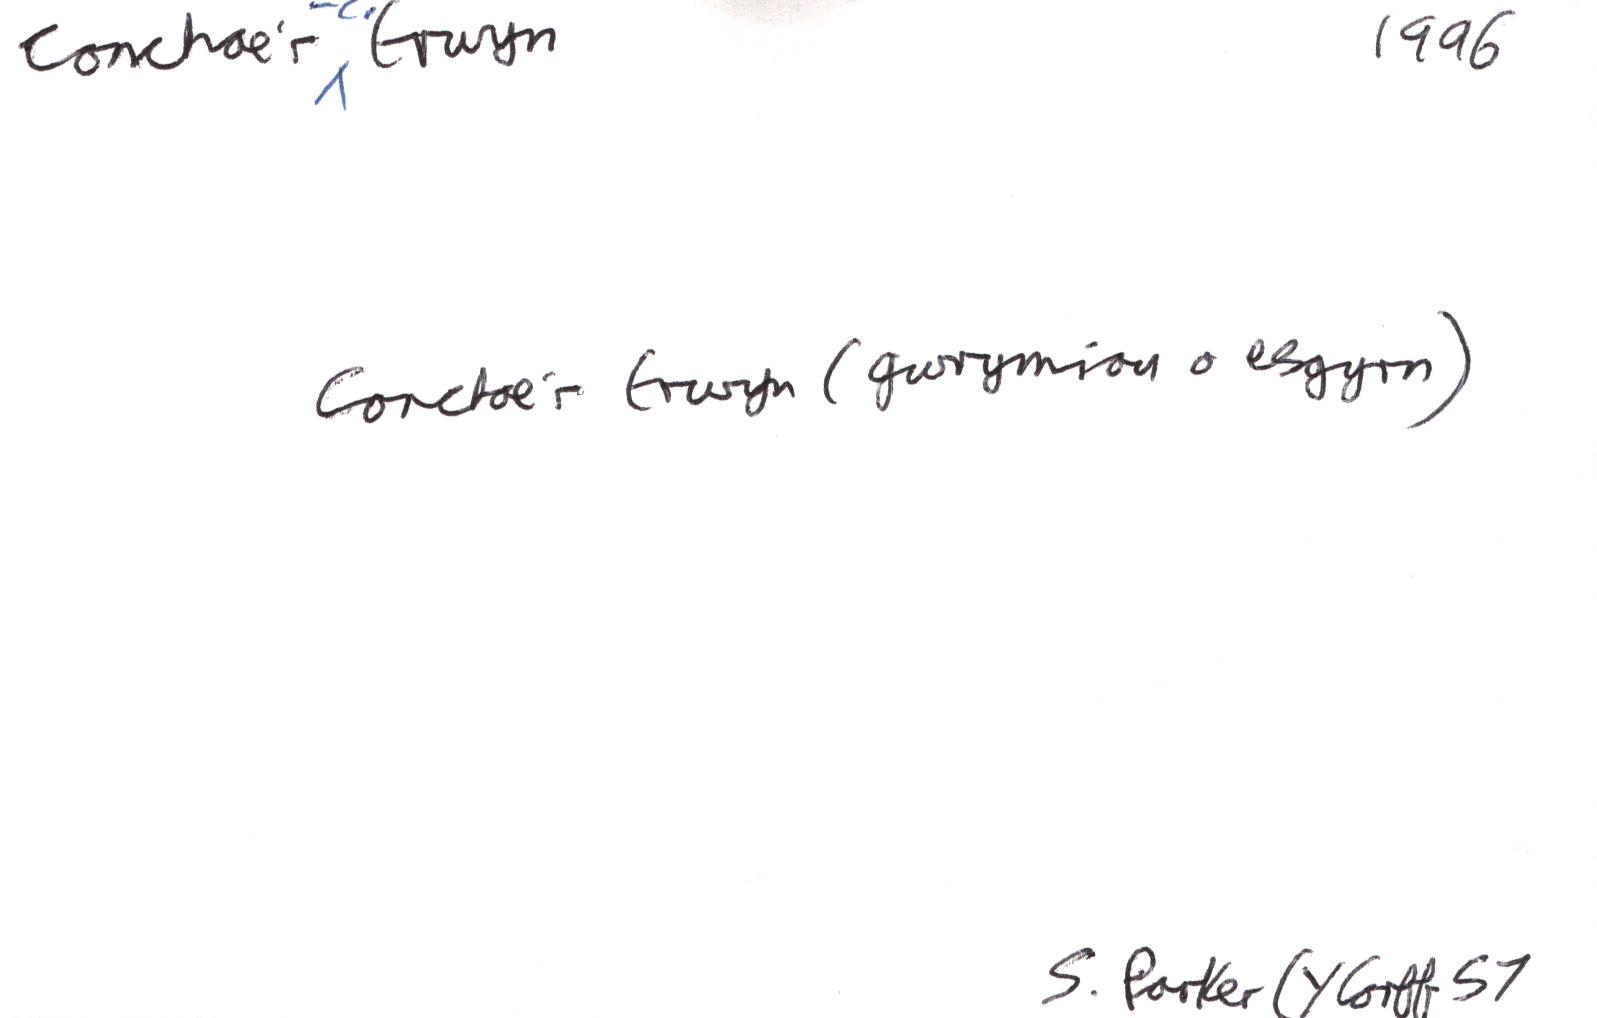 Conchae'r -c. Trwyn 1996
Conchae'r Trwyn (gwrymiau o esgyrn)
S. Parker (Y Corff 57